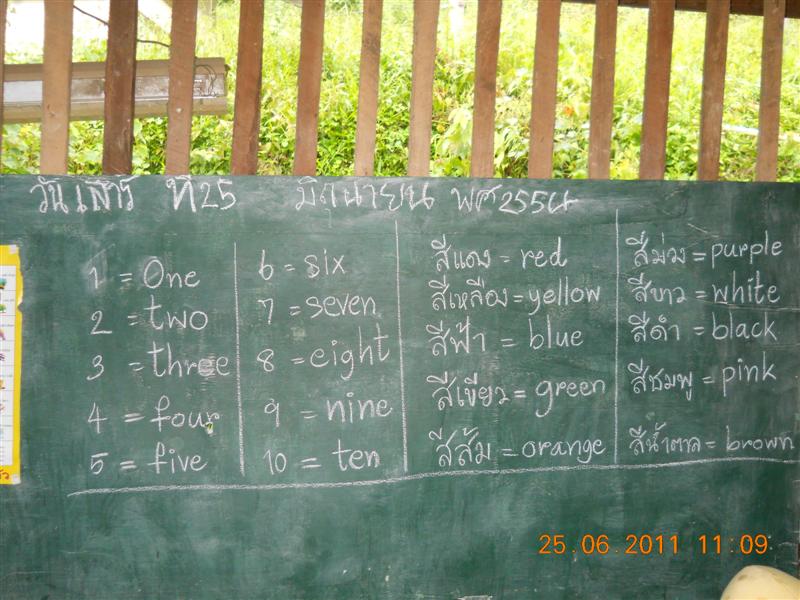 วันเสาร์ ที่ 25 มิถุนายน พศ 2554
1 = One
2 = two
3 = three
4 = four
5 = five
6 = six
7 = seven
8 = eight
9 = nine
10 = ten
สีแดง = red
สีเหลือง = yellow
สีฟ้า = blue
สีเขียว = green
สีส้ม = orange
สีม่วง = purple
สีขาว = white
สีดำ = black
สีชมพู = pink
สีน้ำตาล = brown
25.06.2011 11:09